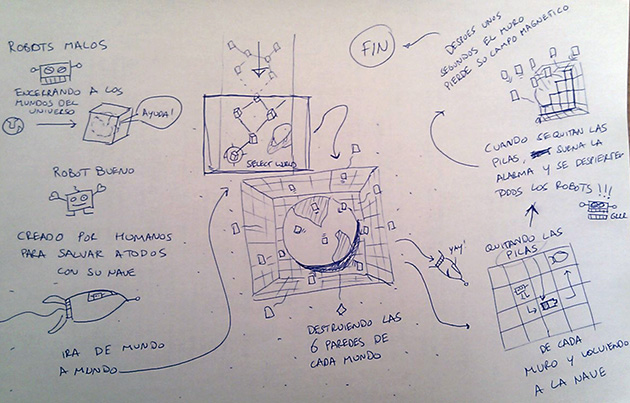 ROBOTS MALOS
ENCERRANDO A LOS
MUNDOS DEL
UNIVERSO
AYUDA!
ROBOT BUENO
CREADO POR HUMANOS
PARA SALVAR A TODOS
CON SU NAVE
IRA DE MUNDO
A MUNDO
SELECT WORLD
DESTRUIENDO LAS
6 PAREDES DE
CADA MUNDO
YAY!
QUITANDO LAS
PILAS
DE CADA
MURO Y VOLVIENDO
A LA NAVE
CUANDO SE QUITAN LAS
PILAS, SUENA LA
ALARMA Y SE DESPIERTAN
TODOS LOS ROBOTS!!!
GRRR
DESPUES UNOS
SEGUNDOS EL MURO
PIERDE SU CAMPO MAGNETICO
FIN